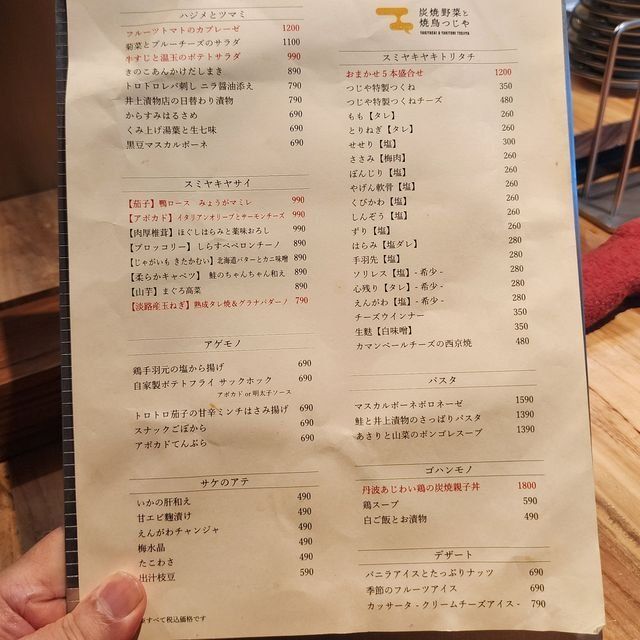 ハジメとツマミ
フルーツトマトのカプレーゼ 1200
菊菜とブルーチーズのサラダ 1100
牛すじと温玉のポテトサラダ 990
きのこあんかけだしまき 890
トロトロレバ刺し ニラ醤油添え 790
井上漬物店の日替わり漬物 790
からすみはるさめ 690
くみ上げ湯葉と生七味 690
黒豆マスカルポーネ 390
スミヤキヤサイ
【茄子】鴨ロース みょうがマミレ 990
【アボカド】イタリアンオリーブとサーモンチーズ 990
【肉厚椎茸】ほぐしはらみと薬味おろし 990
【ブロッコリー】しらすペペロンチーノ 890
【じゃがいも きたかむい】北海道バターとカニ味噌 890
【柔らかキャベツ】鮭のちゃんちゃん和え 890
【山芋】まぐろ高菜 890
【淡路産玉ねぎ】熟成タレ焼&グラナパダーノ 790
アゲモノ
鶏手羽元の塩から揚げ 690
自家製ポテトフライ サックホック 690
アボカド or 明太子ソース
トロトロ茄子の甘辛ミンチはさみ揚げ 690
スナックごぼから 690
アボカドてんぷら 690
サケのアテ
いかの肝和え 490
甘エビ麹漬け 490
えんがわチャンジャ 490
梅水晶 490
たこわさ 490
出汁枝豆 590
すべて税込価格です
炭焼野菜と
焼鳥つじや
YAKIYASAI & YAKITORI TSUJIYA
スミヤキヤキトリタチ
おまかせ5本盛合せ 1200
つじや特製つくね 350
つじや特製つくねチーズ 480
もも【タレ】 260
とりねぎ【タレ】 260
せせり【塩】 300
ささみ【梅肉】 260
ぼんじり【塩】 260
やげん軟骨【塩】 260
くびかわ【塩】 260
しんぞう【塩】 260
ずり【塩】 260
はらみ【塩ダレ】 280
手羽先【塩】 280
ソリレス【塩】- 希少 - 280
心残り【タレ】- 希少 - 280
えんがわ【塩】- 希少 - 280
チーズウインナー 350
生麩【白味噌】 350
カマンベールチーズの西京焼 480
パスタ
マスカルポーネボロネーゼ 1590
鮭と井上漬物のさっぱりパスタ 1390
あさりと山菜のボンゴレスープ 1390
ゴハンモノ
丹波あじわい鶏の炭焼親子丼 1800
鶏スープ 590
白ご飯とお漬物 490
デザート
バニラアイスとたっぷりナッツ 690
季節のフルーツアイス 690
カッサータ - クリームチーズアイス - 790